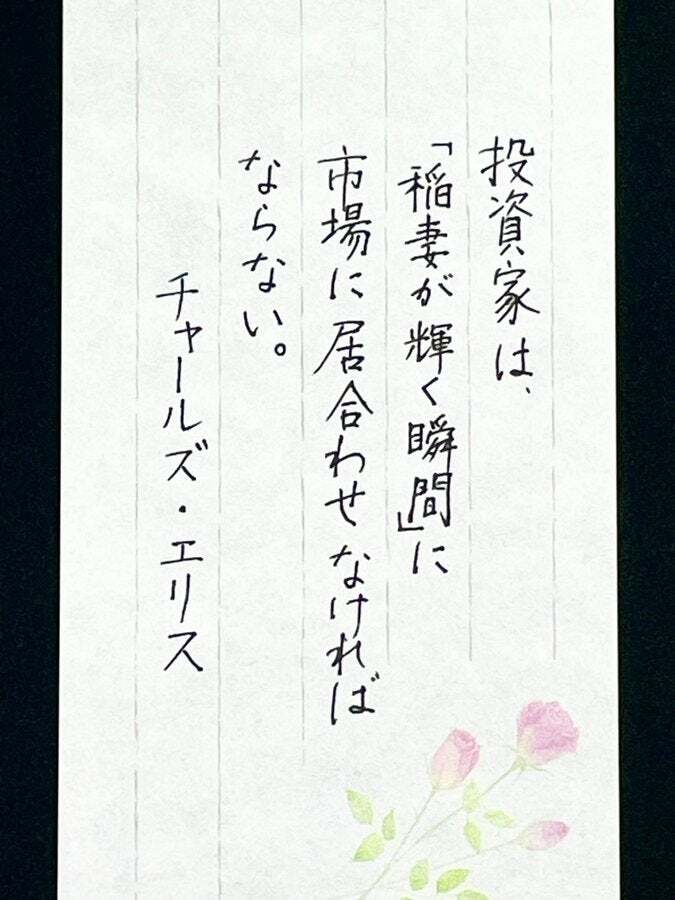 投資家は、
「稲妻が輝く瞬間」に
市場に居合わせなければ
ならない。
チャールズ・エリス